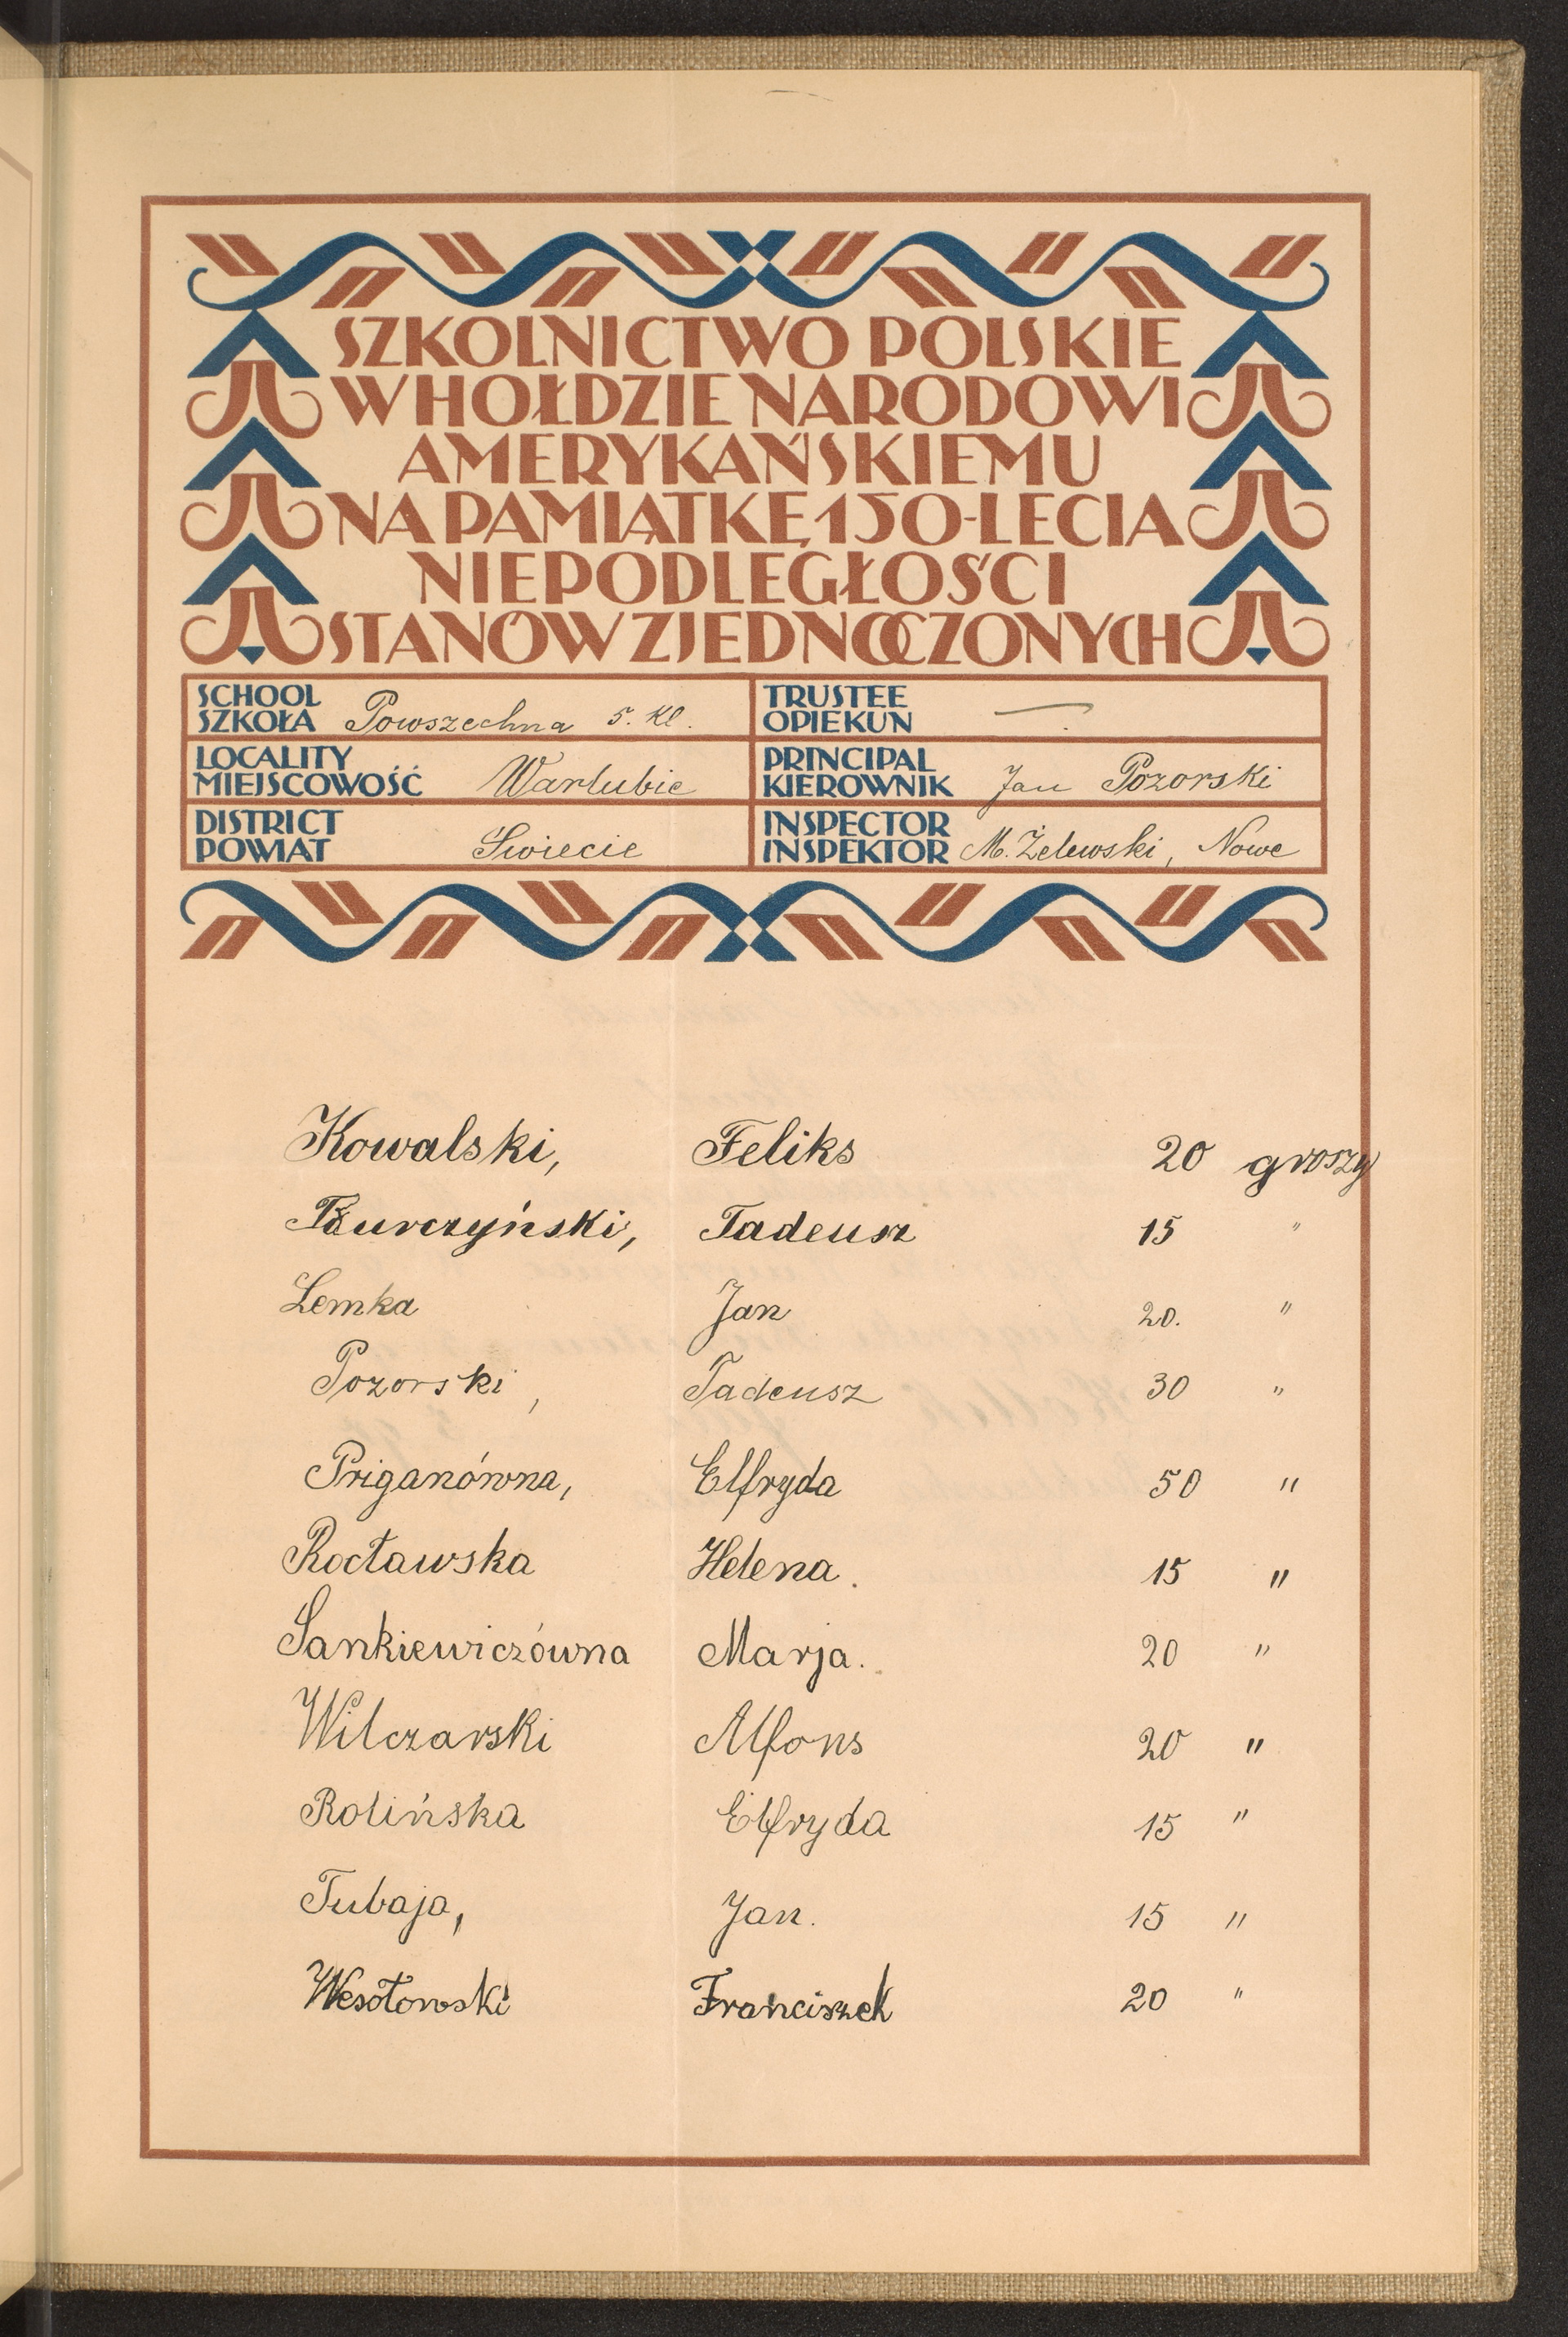 SZKOLNICTWO POLSKIE
W HOŁDZIE NARODOWI
AMERYKAŃSKIEMU
NA PAMIĄTKĘ 150-LECIA
NIEPODLEGŁOŚCI
STANÓW ZJEDNOCZONYCH
SCHOOL
SZKOŁA Powszechna 5. kl.
TRUSTEE
OPIEKUN —
LOCALITY
MIEJSCOWOŚĆ Warlubie
PRINCIPAL
KIEROWNIK Jan Pozorski
DISTRICT
POWIAT Świecie
INSPECTOR
INSPEKTOR M. Żelewski, Nowe
Kowalski, Feliks 20 groszy
Tadeusz 15 "
Lemka Jan 20. "
Pozorski, Tadeusz 30 "
Priganówna, Elfryda 50 "
Rocławska Helena. 15 "
Sankiewiczówna Marja. 20 "
Wilczarski Alfons 20 "
Rolińska Elfryda 15 "
Tubaja, Jan. 15 "
Wesołowski Franciszek 20 "